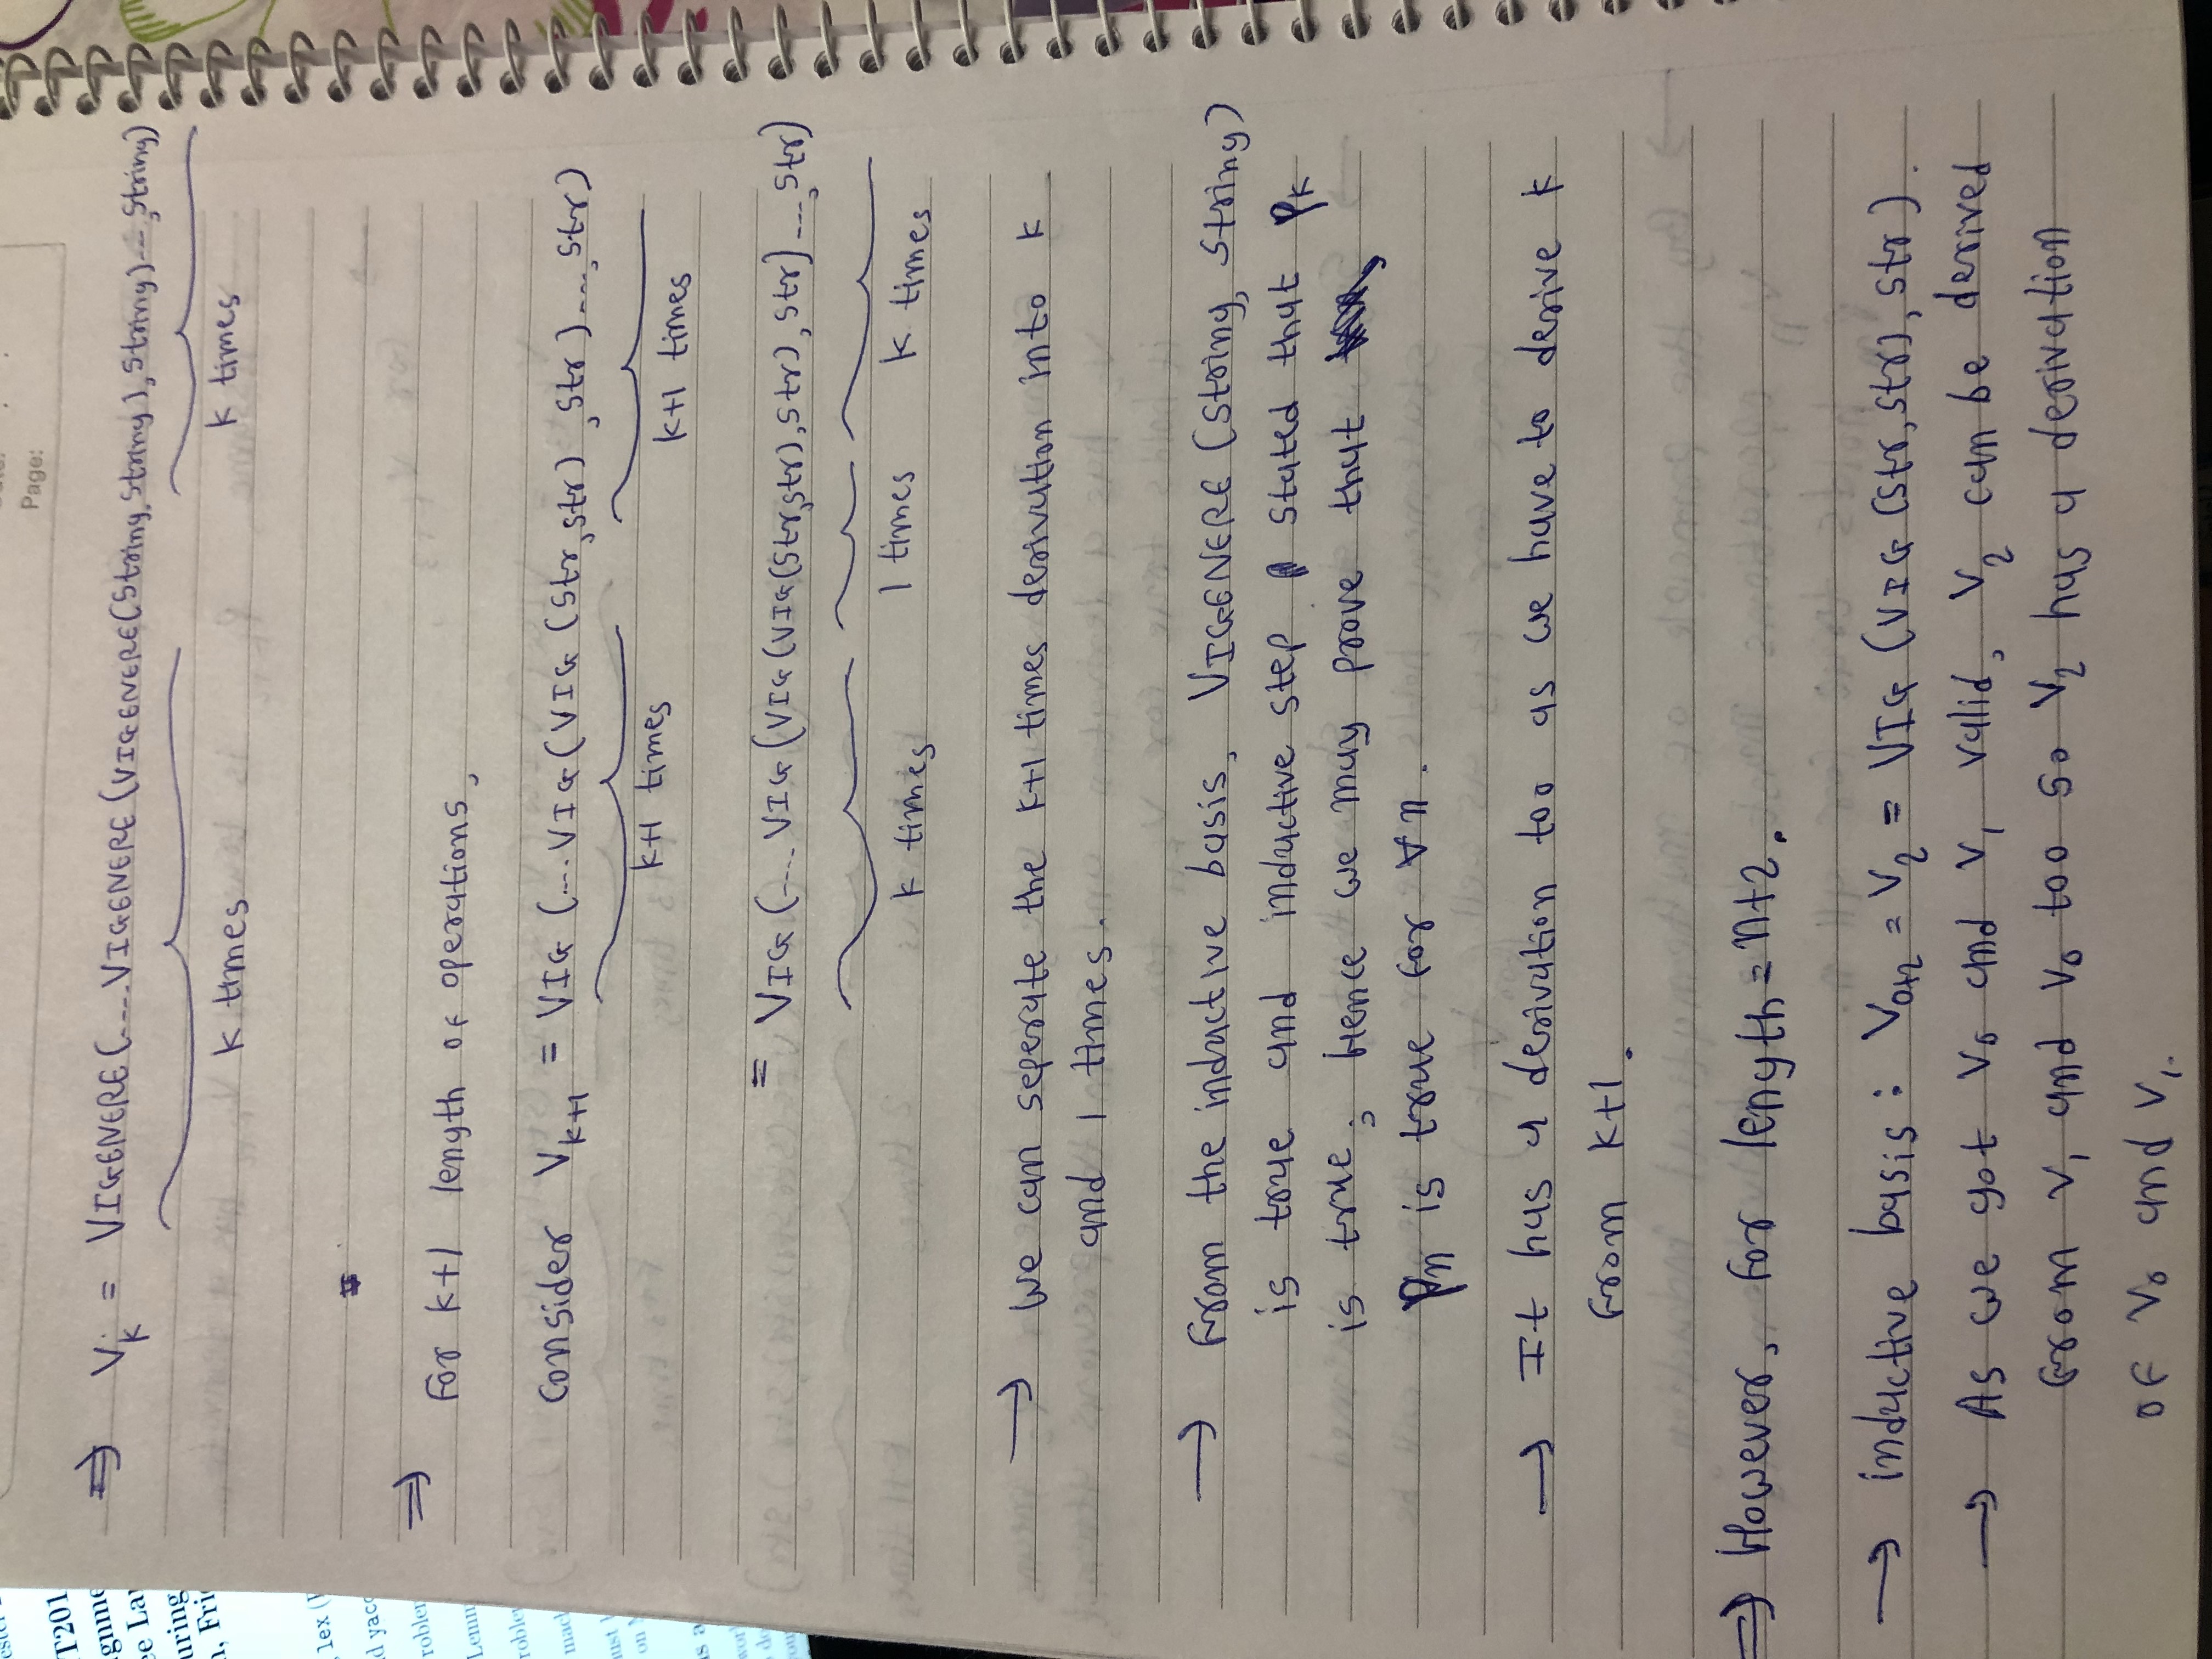 Page:
⇒ Vk = VIGENERE(....VIGENERE(VIGENERE(String, String), String)---, String)
k times k times
⇒
For k+1 length of operations,
Consider Vk+1 = VIG (...VIG(VIG (Str, str), str)..., str)
k+1 times k+1 times
= VIG (.... VIG (VIG (VIG(Str,str),str), str)...., str)
k times 1 times k times
→ We can seperate the k+1 times derivation into k
and 1 times.
→ From the inductive basis, VIGENERE (String, String)
is true and inductive step stated that Pk
is true; Hence we may prove that
Pn is true for ∀n.
→ It has a derivation too as we have to derive k
from k+1.
⇒ However, for length = n+2.
→ inductive basis : V0+2 = V2 = VIG (VIG (Str, str), str).
→ As we got V0 and V1 valid, V2 can be derived
from V1 and V0 too so V2 has a derivation
of V0 and V1.
T201
lex
d yacc
Lemm